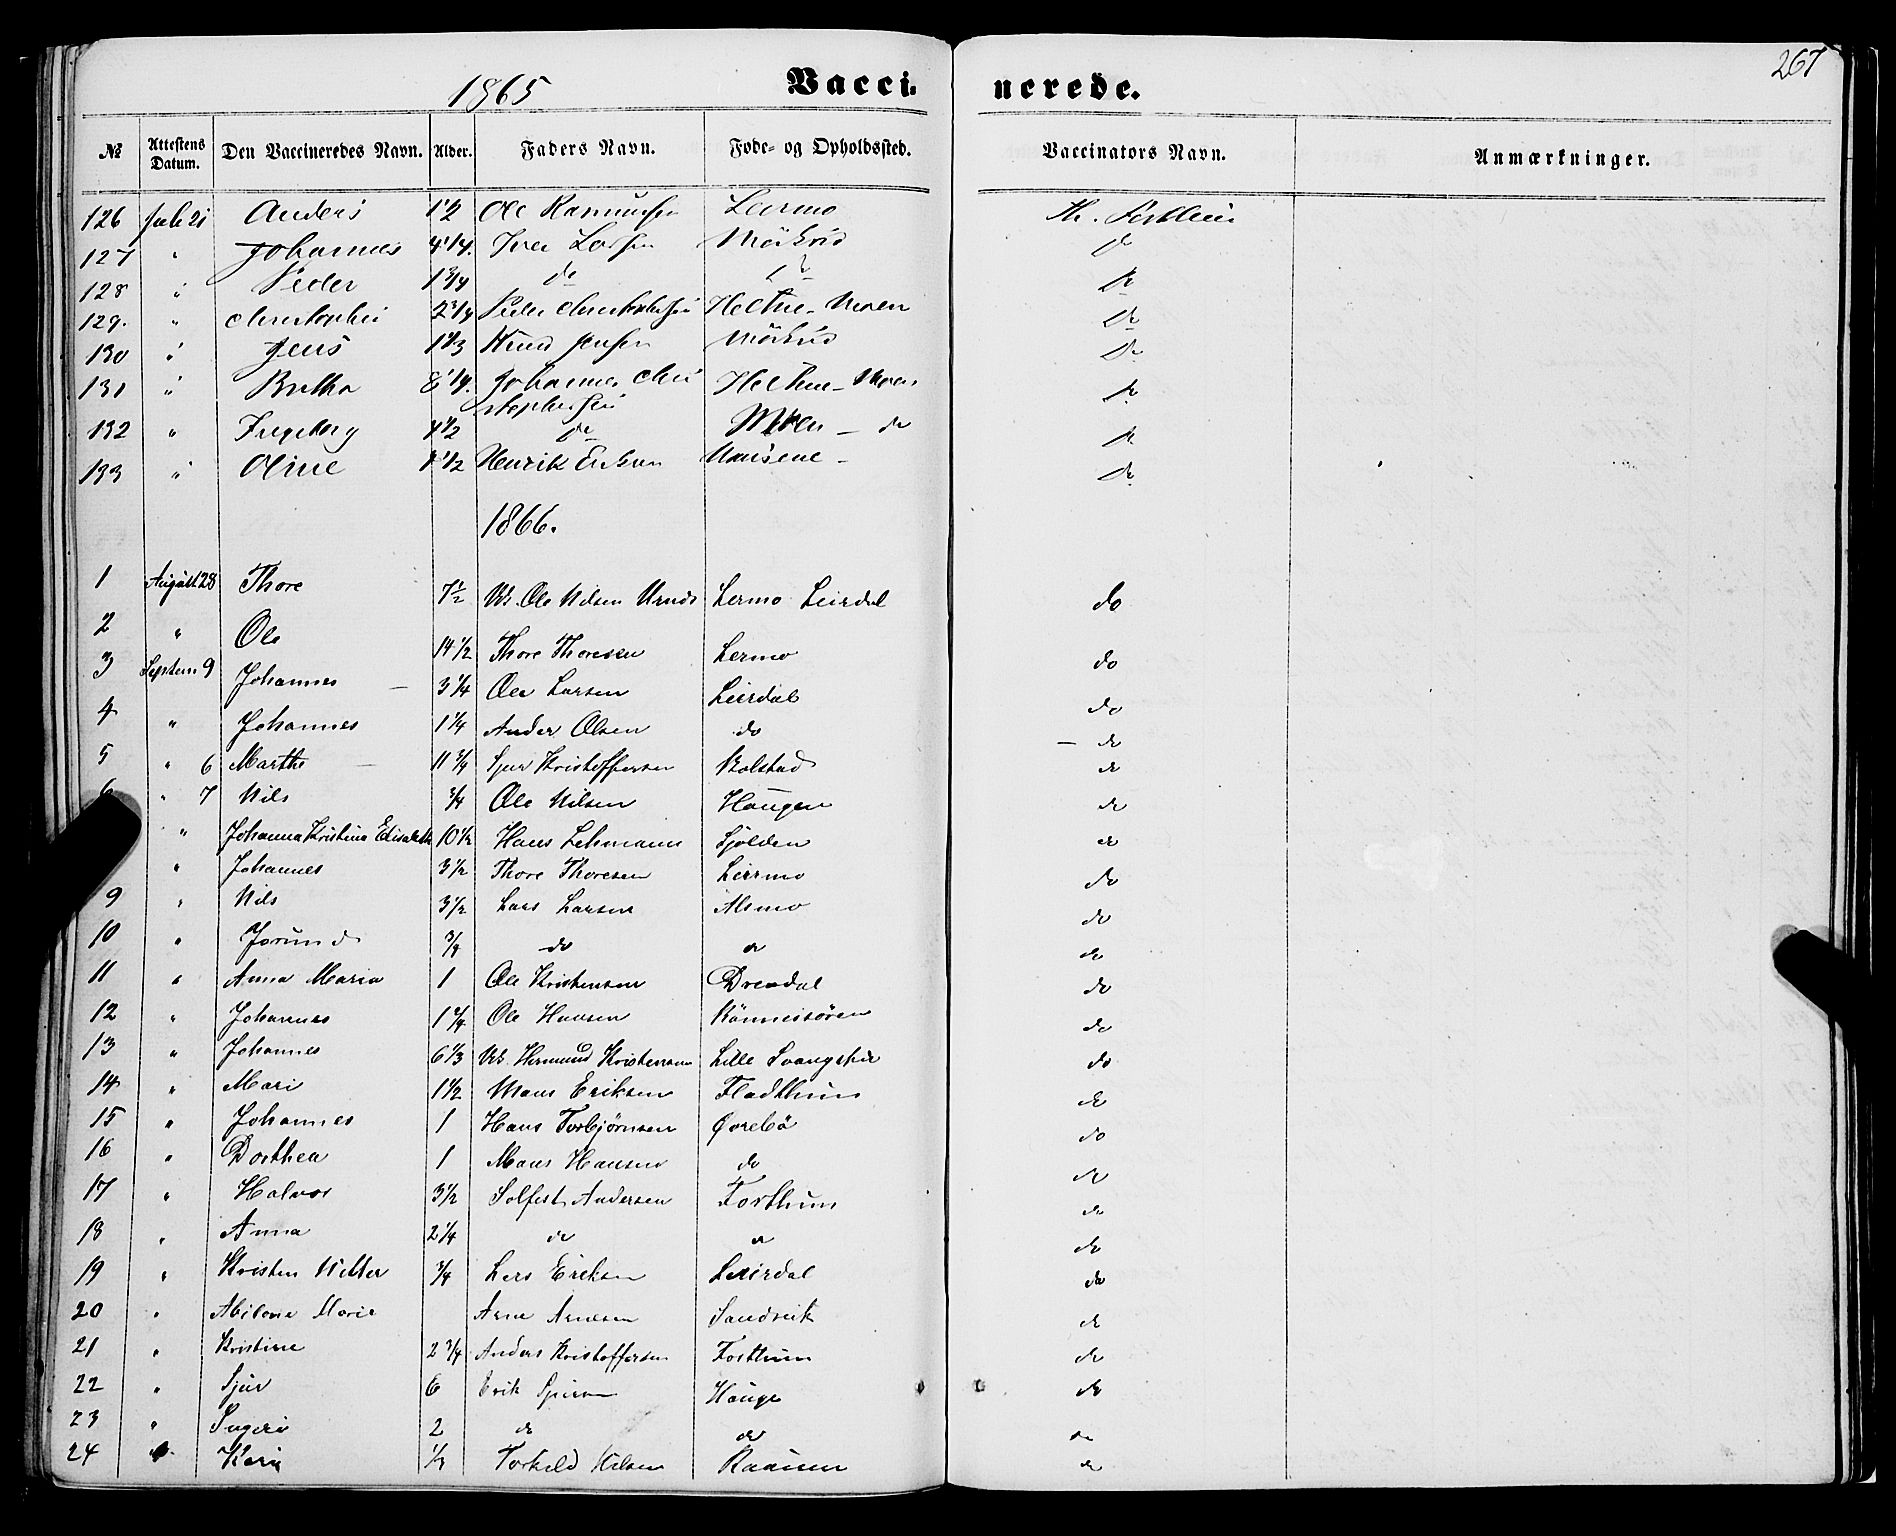 267
1865 Vacci- nerede.
№ Attestens Datum. Den Vaccineredes Navn. Alder. Faders Navn. Føde- og Opholdssted. Vaccinators Navn. Anmærkninger.
126 Juli 21 Anders 1 1/2 Ole Rasmussen Leirmo
127 " Johannes 4 1/4 Iver Larsen Mörkrid do
128 " Peder 1 3/4 do do do
129. " Christopher 2 3/4 Peder Christophersen Heltne-Moen do
130 " Jens 1 1/3 Knud Jensen Mörkrid do
131 " Brithe 8 1/4 Johannes Chri Heltne-Moen do
stophersen
132 " Ingeborg 1/2 do Moen - do do
133 " Oline 1 1/2 Henrik Eriksen do
1866.
1 August 28 Thore 7 1/2 Ole Nilsen Urnes Lermo Leirdal do
2 " Ole 14 1/2 Thore Thoresen Lermo do
3 Septem 9 Johannes 3 1/4 Ole Larsen Leirdal do
4 " Johannes 1 1/4 Ander Olsen do do
5 " 6 Marthe 11 3/4 Sjur Kristoffersen Bolstad do
6 " 7 Nils 3/4 Ole Nilsen Haugen do
" Johanna Kristina Elisabeth 10 1/2 Hans Lehmann Sjolden do
" Johannes 3 1/2 Thore Thoresen Leirmo do
9 " Nils 3 1/2 Lars Larsen Alsmo do
10 " Jorund 3/4 do do do
11 " Anna Maria 1 Ole Kristensen Drendal do
12 " Johannes 1 1/4 Ole Hansen Rönneisören do
13 " Johannes 6 1/3 Hermund Kristensen Lille do
14 " Mari 1 1/2 Mons Eriksen Fladthun do
15 " Johannes 1 Hans Torbjørnsen Ørebö do
16 " Dorthea 1 Mons Hansen do do
17 " Halvor 3 1/2 Solfest Andersen Forthun do
18 " Anna 2 1/4 do do do
19 " Kristen Nitter 3/4 Lars Eriksen Leirdal do
20 " Marie Arne Arnesen Sandvik do
21 " Kristine 2 3/4 Anders Kristoffersen Forthun do
22 " Sjur 6 Erik Hauge do
23 " Ingeri 2 do do do
24 " Kari 1/3 Torkild Nilsen do